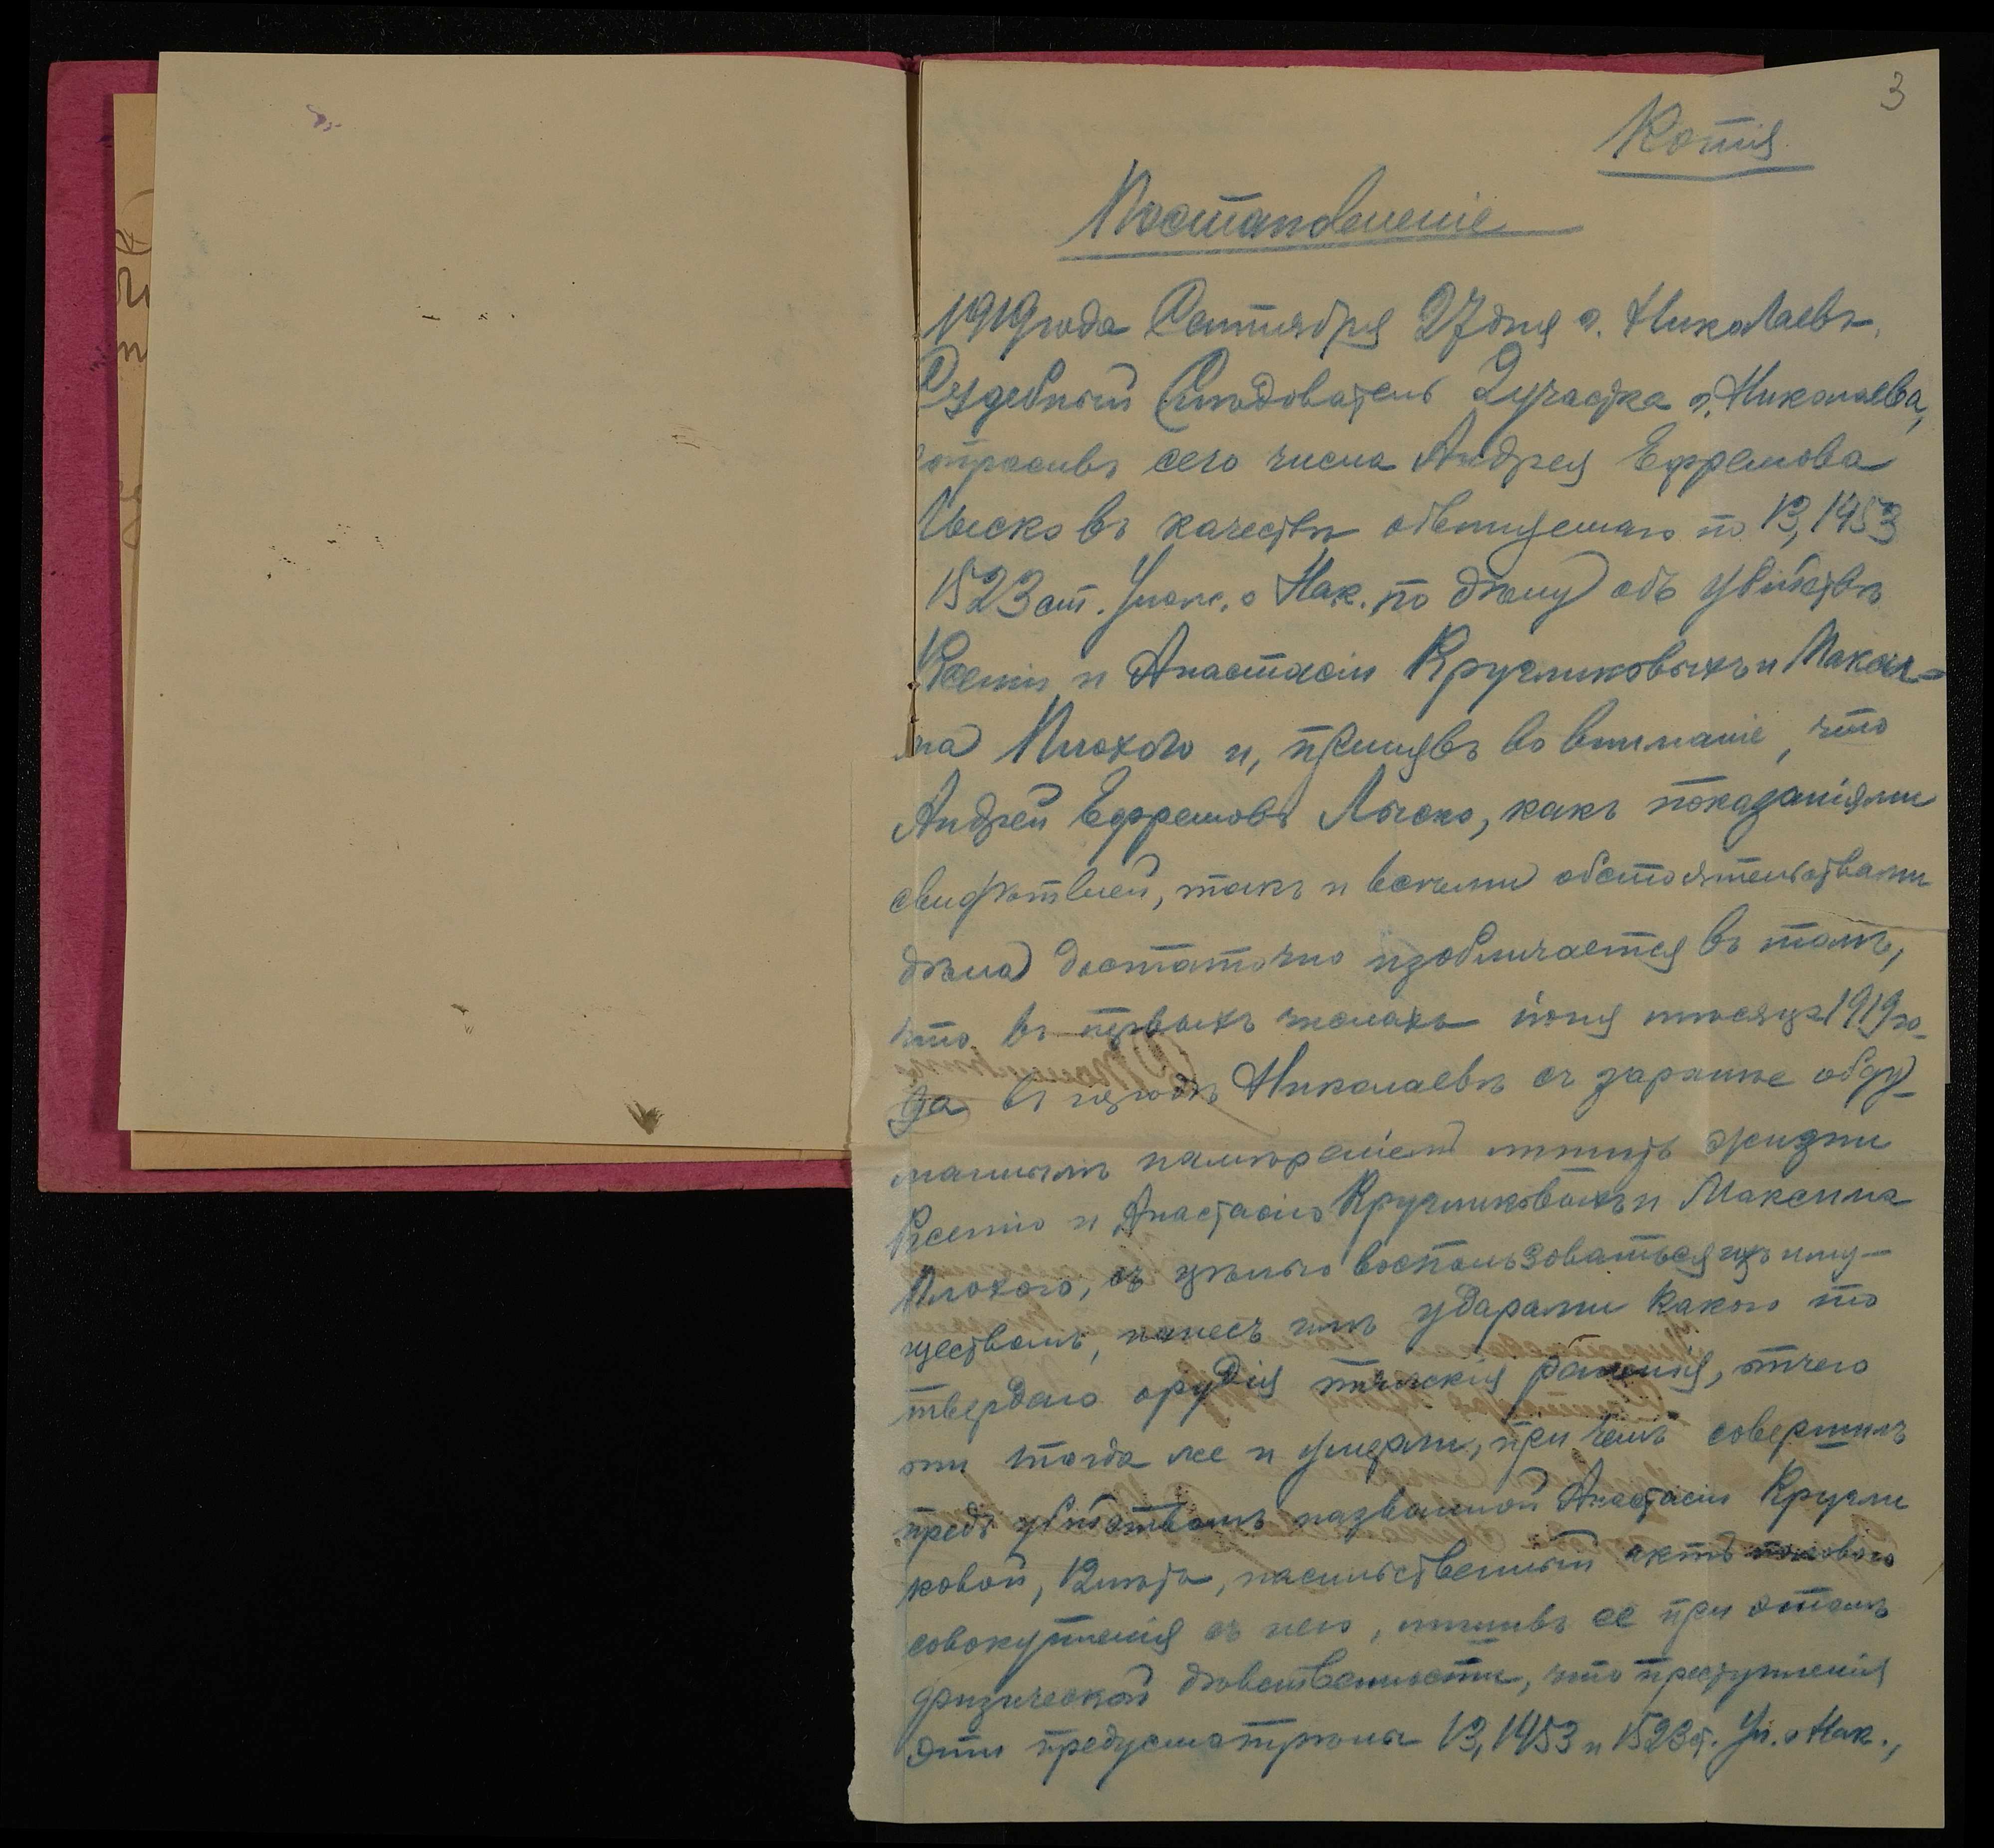 3
Копія
Постановленіе
1919 года Сентября 27 дня г. Николаевъ.
Судебный Слѣдователь 2 участка г. Николаева,
допросивъ сего числа Андрея Ефремова
Лыско въ качествѣ обвиняемаго по 13, 1453
1523 ст. Улож. о Нак. по дѣлу объ убійствѣ
Ксеніи и Анастасіи Кругликовыхъ и Макси-
ма Плохого и, принявъ во вниманіе, что
Андрей Ефремовъ Лыско, какъ показаніями
свидѣтелей, такъ и всѣми обстоятельствами
дѣла достаточно изобличается въ томъ,
что въ первыхъ числахъ іюня мѣсяца 1919 го-
да въ городѣ Николаевѣ съ заранѣе обду-
маннымъ намѣреніемъ лишить жизни
Ксенію и Анастасію Кругликовыхъ и Максима
Плохого, съ цѣлью воспользоваться ихъ иму-
ществомъ, нанесъ имъ ударами какого то
твердаго орудія тяжскія раненія, отчего
они тогда же и умерли, при чемъ совершилъ
предъ убійствомъ названной Анастасіи Кругли
ковой, 12 лѣтъ, насильственный актъ полового
совокупленія съ нею, лишивъ ее при этомъ
физической дѣвственности, что преступленія
эти предусмотрѣны 13, 1453 и 1523 ст. Ул. о Нак.,